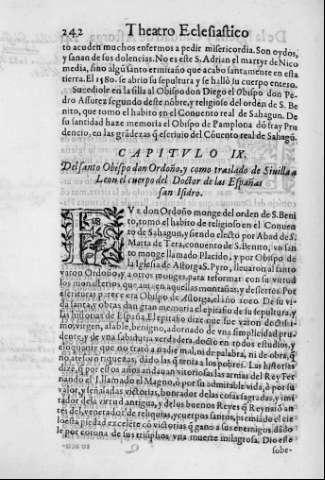 242 Theatro Eclesiastico
to acuden muchos enfermos a pedir misericordia. Son oydos,
y sanan de sus dolencias. No es este S. Adrian el martyr de Nico
media, sino algũ santo ermitaño que acabo santamente en esta
tierra. El 1580. se abrio su sepultura y se hallò su cuerpo entero.
Sucediole en la silla al Obispo don Diego el Obispo don Pe-
dro Assurez segundo deste nõbre, y religioso del orden de S. Be
nito, que tomo el habito en el Conuento real de Sahagun. De
su santidad haze memoria el Obispo de Pamplona dõ fray Pru
dencio, en las grãdezas q̃ escriuio del Cõuento real de Sahagũ.
CAPITVLO IX.
Del santo Obispo don Ordoño, y como traslado de Siuilla a
Leon el cuerpo del Doctor de las Españas
san Isidro.
FVe don Ordoño monge del orden de S. Beni
to, tomo el habito de religioso en el Conuen
to de Sahagun, y siendo electo por Abad de S.
Marta de Tera, conuento de S. Benito, vn san
to monge llamado Placido, y por Obispo de
la Iglesia de Astorga S. Pyro, lleuaron al santo
varon Ordoño, y a otros monges, para reformar con su virtud
los monasterios que auia en aquellas montañas, y desiertos. Por
escrituras parece era Obispo de Astorga, el año
santa, y obras dan gran memoria el epitafio de su sepultura, y
las historias de España. El epitafio dize que fue varon
mo, virgen, afable, benigno, adornado de vna simplicidad pru
dente, y de vna sabiduria verdadera, docto en todos estudios, y
que no trató a nadie mal, ni de palabra, ni de obra, q̃
no atesorò riquezas, dãdo las q̃ tenia a los pobres. Las historias
dizen, q̃ por estos años andauan vitoriosas las armas del Rey Fer
nando el I. llamado el Magno, ò por su admirable vida, ò por su
valor, y señaladas victorias, honrador de las cosas sagradas, y imi
tador de la virtud antigua, y de los buenos Reyes q̃ Reynarõ an
tes del, venerador de reliquias, y cuerpos santos, premiado el cie
lo esta piedad excelẽte cõ victorias q̃ gano a sus enemigos, dãdo
le por corona de sus triũphos vna muerte milagrosa. Dio este
sobe-